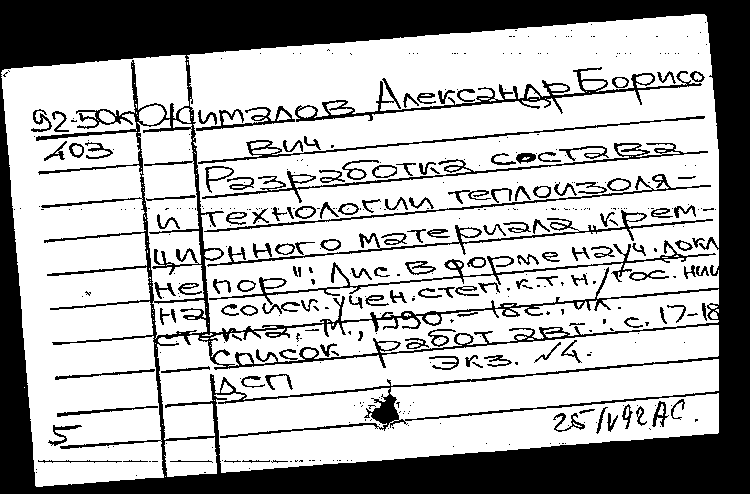 92-50к Ожималов, Александр Борисо
403 вич.
Разработка состава
и технологии теплоизоля-
ционного материала „крем-
непор": Дис. в форме науч. докл
на соиск. учен. степ. к.т.н./ Гос. нии
стекла. - М., 1990. - 18 с.; ил.
Список работ авт.: с. 17-18
Экз. №4.
ДСП
5
25/IV92 АС.